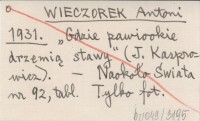 WIECZOREK Antoni
1931. „Gdzie pawiookie
drzemią stawy" (J. Kaspro-
wicz). — Naokoło Świata
nr 92, tabl. Tylko fot.